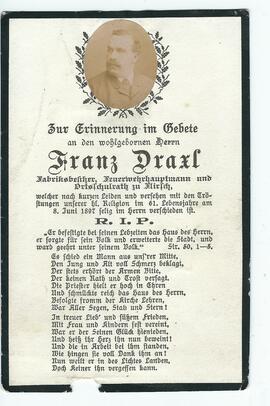 Zur Erinnerung im Gebete
an den wohlgebornen Herrn
Franz Draxl
Fabriksbesitzer, Feuerwehrhauptmann und
Ortsschulrath zu
welcher nach kurzen Leiden und versehen mit den Trö-
stungen unserer hl. Religion im 61. Lebensjahre am
8. Juni 1897 selig im Herrn verschieden ist.
R. I. P.
„Er befestigte bei seinen Lebzeiten das Haus des Herrn,
er sorgte für sein Volk und erweiterte die Stadt, und
ward geehrt unter seinem Volk." Sir. 50, 1—5.
Es schied ein Mann aus uns'rer Mitte,
Den Jung und Alt voll Schmerz beklagt,
Der stets erhört der Armen Bitte,
Der keinen Rath und Trost versagt.
Die Priester hielt er hoch in Ehren
Und schmückte reich das Haus des Herrn,
Befolgte fromm der Kirche Lehren,
War Aller Segen, Stab und Stern!
In treuer Lieb' und süßem Frieden,
Mit Frau und Kindern fest vereint,
War er der Seinen Glück hienieden,
Und heiß ihr Herz ihn nun beweint!
Und die in Arbeit bei ihm standen,
Wie hingen sie voll Dank ihm an!
Nun weilt er in des Lichtes Landen,
Doch Keiner ihn vergessen kann.